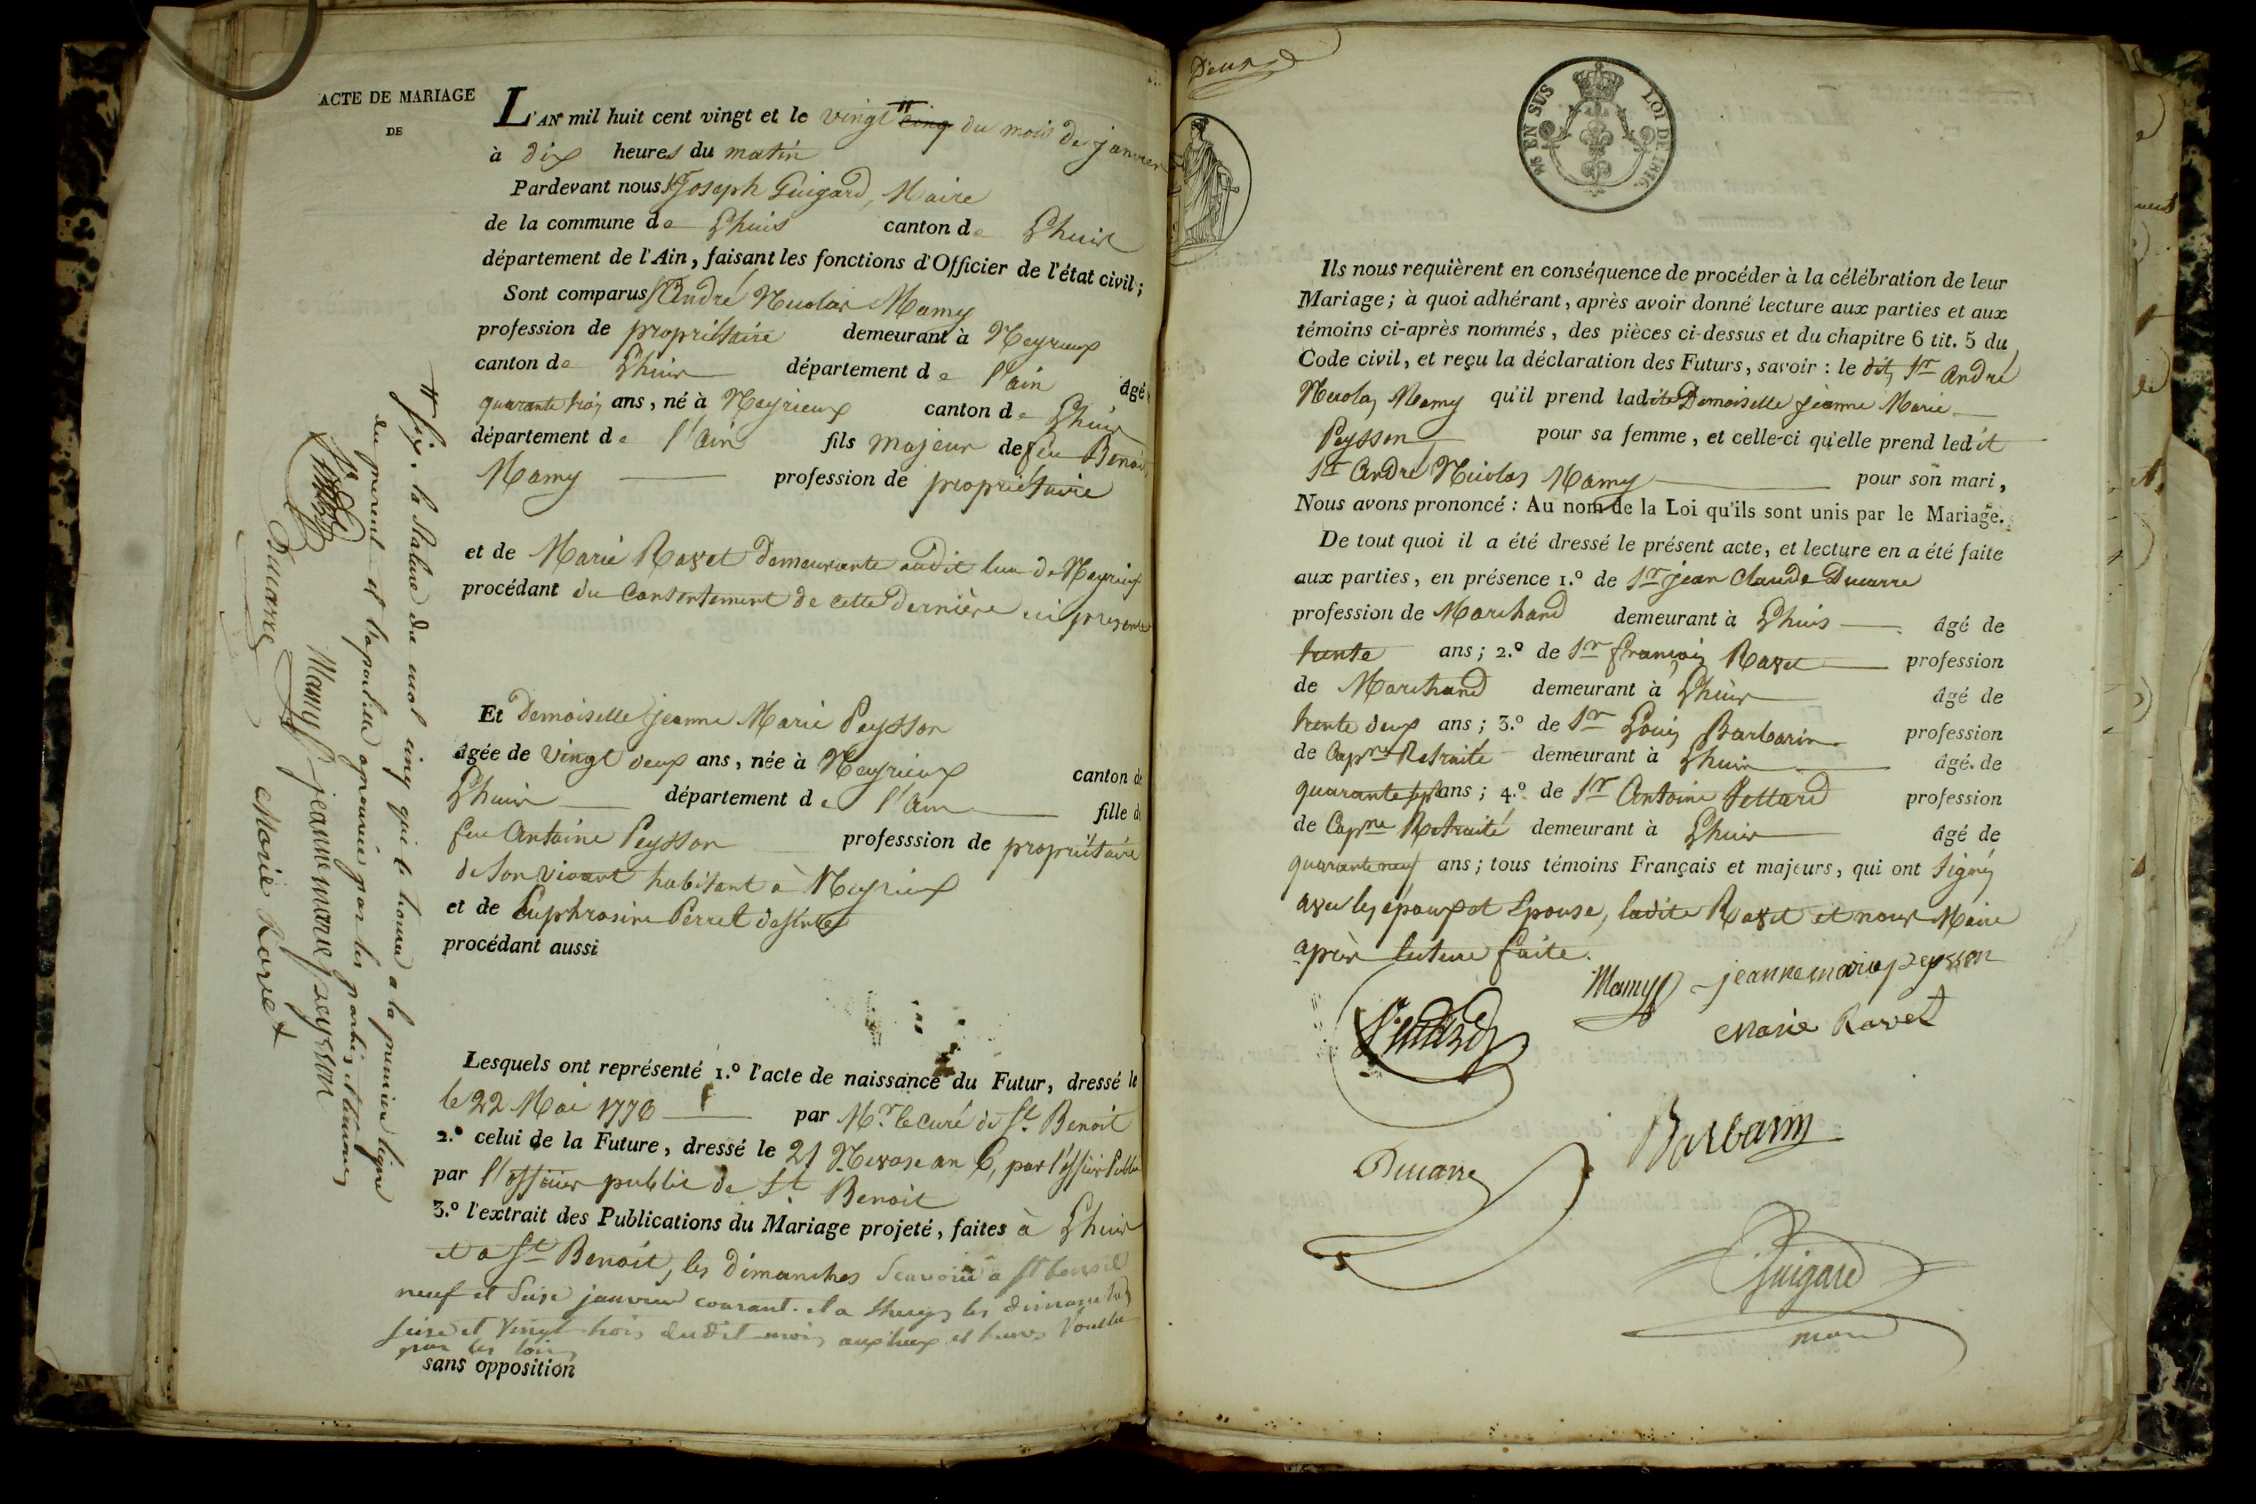 ACTE DE MARIAGE
DE
L'AN mil huit cent vingt et le vingt # cinq du mois de janvier
à dix heures du matin
Pardevant nous Sr Joseph Guigard, Maire
de la commune de Lhuis canton de Lhuis
département de l'Ain, faisant les fonctions d'Officier de l'état civil;
Sont comparus Sr André Nicolas Mamy
profession de propriétaire demeurant à Meyrieux
canton de Lhuis département de l'ain âgé
quarante trois ans, né à Meyrieux canton de Lhuis
département de l'ain fils majeur de feu Benoit
Mamy profession de propriétaire
et de Marie Ravet demeurante audit lieu de Meyrieux
procédant du Consentement de cette dernière ici présente
Et Demoiselle jeanne Marie Peysson
âgée de vingt deux ans, née à Meyrieux canton de
Lhuis département de l'ain fille de
feu Antoine Peysson professsion de propriétaire
de Son vivant habitant à Meyrieux
et de Euphrosine Perret
procédant aussi
Lesquels ont représenté 1.º l'acte de naissance du Futur, dressé le
le 22 Mai 1776 par Mr. le curé de St. Benoit
2.º celui de la Future, dressé le 21 Nivose an 6, par l'officier Public
par l'officier public de St Benoit
3.º l'extrait des Publications du Mariage projeté, faites à Lhuis
et a St Benoit, les dimanches Scavoir a St benoit
neuf et Seize janvier courant. et a Lhuis les dimanches
Seize et vingt trois dudit mois aux lieux et heures Voulue
par les loix
sans opposition
# fixe. la Rature du mot cinq qui se trouve a la premiere ligne
du present et l'apostille aprouvée par les parties et temoins
Mamy jeanne marie peysson
Ducarre Marie Ravet
Deux
EN SUS
LOI DE 1816.
Ils nous requièrent en conséquence de procéder à la célébration de leur
Mariage; à quoi adhérant, après avoir donné lecture aux parties et aux
témoins ci-après nommés, des pièces ci-dessus et du chapitre 6 tit. 5 du
Code civil, et reçu la déclaration des Futurs, savoir : le dit Sr André
Nicolas Mamy qu'il prend ladite Demoiselle jeanne Marie
Peysson pour sa femme, et celle-ci qu'elle prend ledit
Sr André Nicolas Mamy pour son mari,
Nous avons prononcé : Au nom de la Loi qu'ils sont unis par le Mariage.
De tout quoi il a été dressé le présent acte, et lecture en a été faite
aux parties, en présence 1.º de Sr jean Claude Ducarre
profession de Marchand demeurant à Lhuis âgé de
trente ans; 2.º de Sr françois Ravet profession
de Marchand demeurant à Lhuis âgé de
trente deux ans; 3.º de Sr Louis Barbarin profession
de Capne Retraité demeurant à Lhuis âgé de
quarante sept ans; 4.º de Sr Antoine profession
de Capne Retraité demeurant à Lhuis âgé de
quarante neuf ans; tous témoins Français et majeurs, qui ont signé
avec les époux et Epouse, ladite Ravet et nous Maire
après lecture faite.
Mamy jeanne marie peysson
Marie Ravet
Barbarin
Ducarre
Guigard
maire